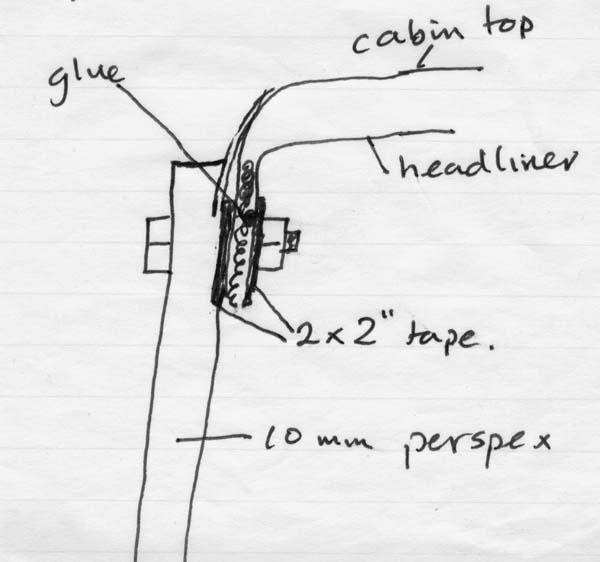 cabin top
glue
headliner
2 x 2" tape.
10 mm perspex